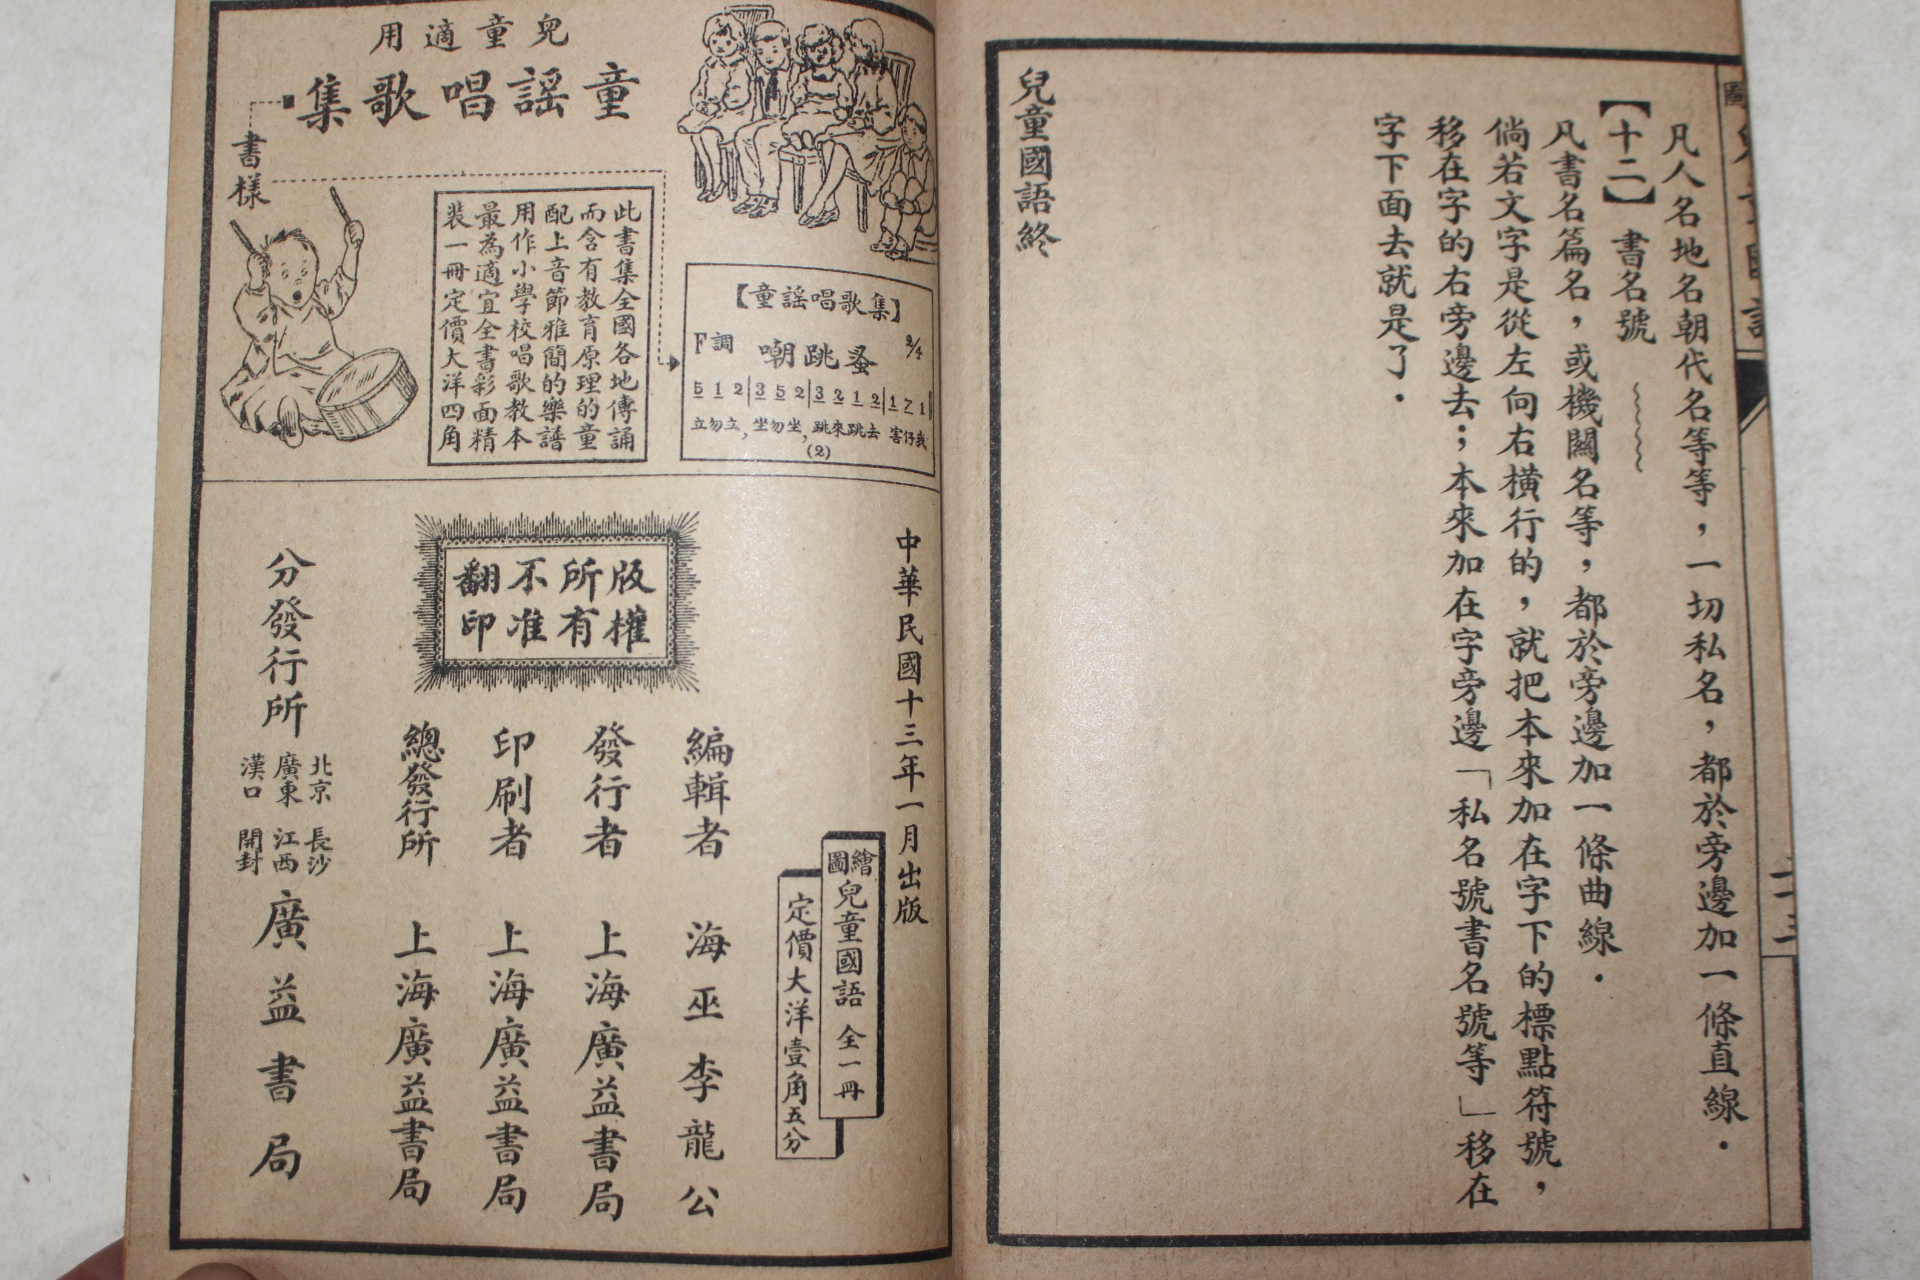 凡人名地名朝代名等等，一切私名，都於旁邊加一條直線．
【十二】書名號﹏﹏
凡書名篇名，或機關名等，都於旁邊加一條曲線．
倘若文字是從左向右橫行的，就把本來加在字下的標點符號，
移在字的右旁邊去；本來加在字旁邊「私名號書名號等」移在
字下面去就是了．
兒童國語終
二十三
兒童適用
童謡唱歌集
書樣
此書集全國各地傳誦
而含有教育原理的童
配上音節雅簡的樂譜
用作小學校唱歌教本
最為適宜全書彩面精
裝一冊定價大洋四角
【童謡唱歌集】
F調 嘲跳蚤 2/4
5 1 2|3 5 2|3 2 1 2|1 7 1
立勿立，坐勿坐，跳來跳去 害仔我
(2)
中華民國十三年一月出版
繪圖兒童國語 全一冊
定價大洋壹角五分
版權所有不准翻印
編輯者 海巫李龍公
發行者 上海廣益書局
印刷者 上海廣益書局
總發行所 上海廣益書局
分發行所 北京 長沙 廣東 江西 漢口 開封 廣益書局